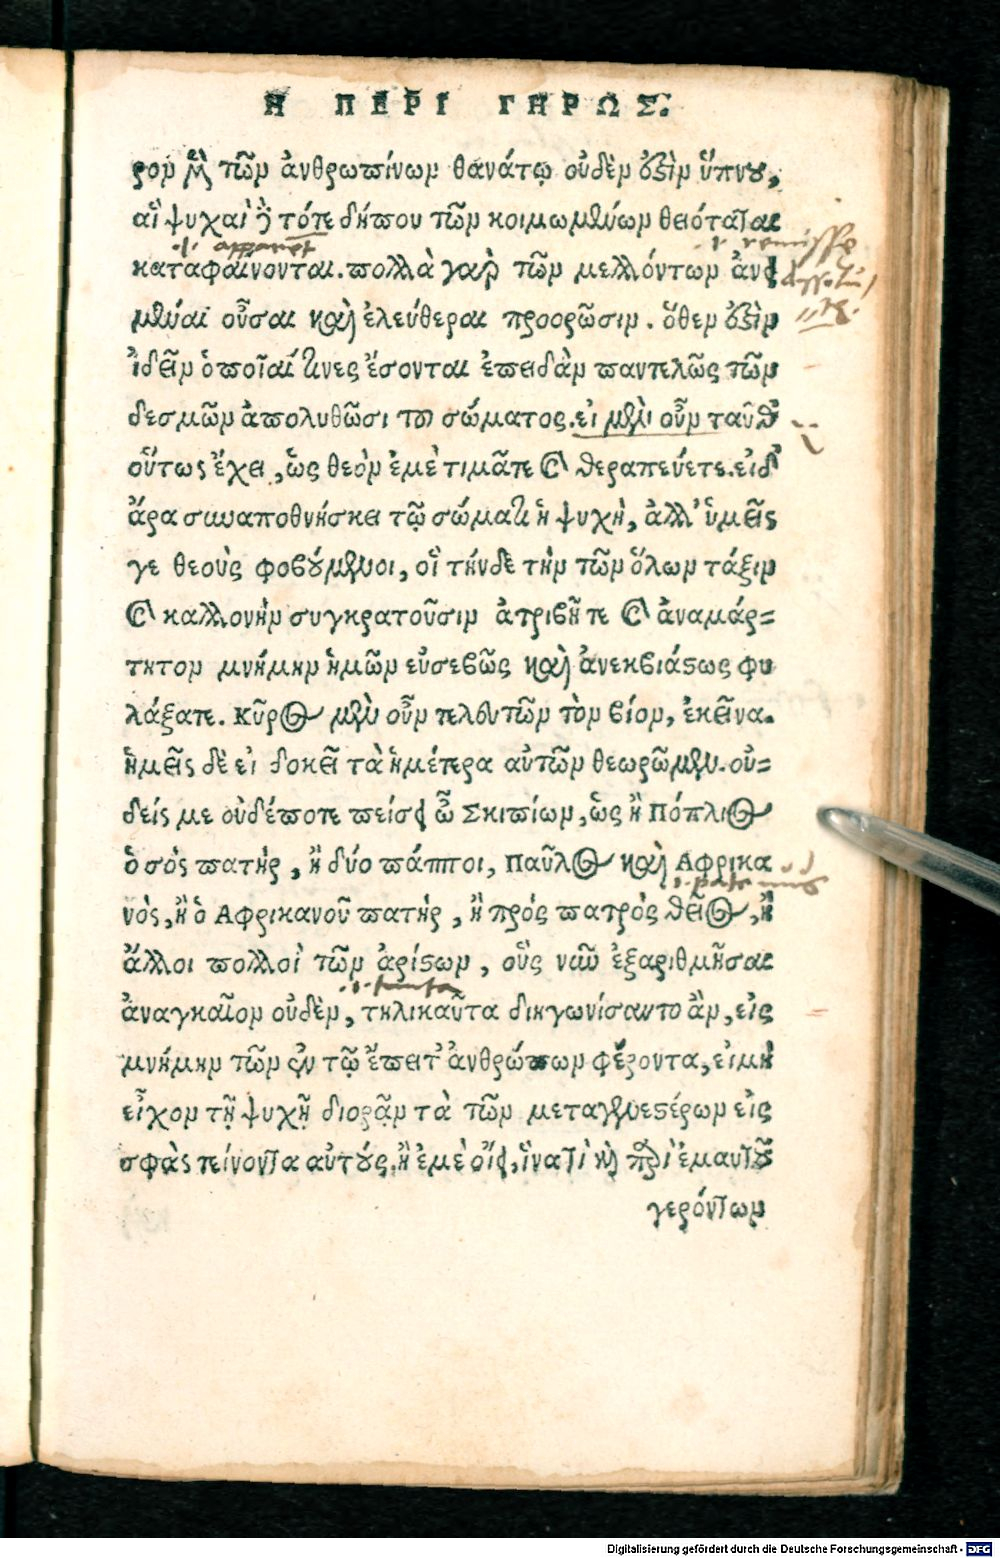 Η ΠΕΡΙ ΓΗΡΩΣ.
ρον τῶν ἀνθρωπίνων θανάτῳ οὐδὲν ἐστὶν ὕπνου,
αἳ ψυχαὶ τότε δήπου τῶν κοιμωμένων θειόταται
.i. apparent
.i. remisse
καταφαίνονται. πολλὰ γὰρ τῶν μελλόντων ἀνει
μέναι οὖσαι καὶ ἐλεύθεραι προορῶσιν. ὅθεν ἐστὶν
ἰδεῖν ὁποῖαί τινες ἔσονται ἐπειδὰν παντελῶς τῶν
δεσμῶν ἀπολυθῶσι τοῦ σώματος. εἰ μὲν οὖν ταῦθ᾽
οὕτως ἔχει, ὡς θεὸν ἐμὲ τιμᾶτε καὶ θεραπεύετε. εἰ δ᾽
ἄρα συναποθνήσκει τῷ σώματι ἡ ψυχὴ, ἀλλ᾽ ὑμεῖς
γε θεοὺς φοβούμενοι, οἳ τήνδε τὴν τῶν ὅλων τάξιν
καὶ καλλονὴν συγκρατοῦσιν ἀτριβῆ τε καὶ ἀναμάρ=
τητον μνήμην ἡμῶν εὐσεβῶς καὶ ἀνεκβιάστως φυ
λάξατε. Κῦρος μὲν οὖν τελευτῶν τὸν βίον, ἐκεῖνα.
ἡμεῖς δὲ εἰ δοκεῖ τὰ ἡμέτερα αὐτῶν θεωρῶμεν. οὐ=
δείς με οὐδέποτε πείσει ὦ Σκιπίων, ὡς ἢ Πόπλιος
ὁ σὸς πατὴρ, ἢ δύο πάπποι, Παῦλος καὶ Αφρικα
.i. paternus
νὸς, ἢ ὁ Αφρικανοῦ πατὴρ, ἢ πρὸς πατρὸς θεῖος, ἢ
ἄλλοι πολλοὶ τῶν ἀρίστων, οὓς νῦν ἐξαριθμῆσαι
.i. tanta
ἀναγκαῖον οὐδὲν, τηλικαῦτα διηγωνίσαντο ἂν, εἰς
μνήμην τῶν ἐν τῷ ἔπειτ᾽ ἀνθρώπων φέροντα, εἰ μὴ
εἶχον τῇ ψυχῇ διορᾷν τὰ τῶν μεταγενεστέρων εἰς
σφᾶς τείνοντα αὐτούς. ἢ ἐμὲ οἴει, ἵνα τι καὶ περὶ ἐμαυτοῦ
γερόντων
Digitalisierung gefördert durch die Deutsche Forschungsgemeinschaft - DFG